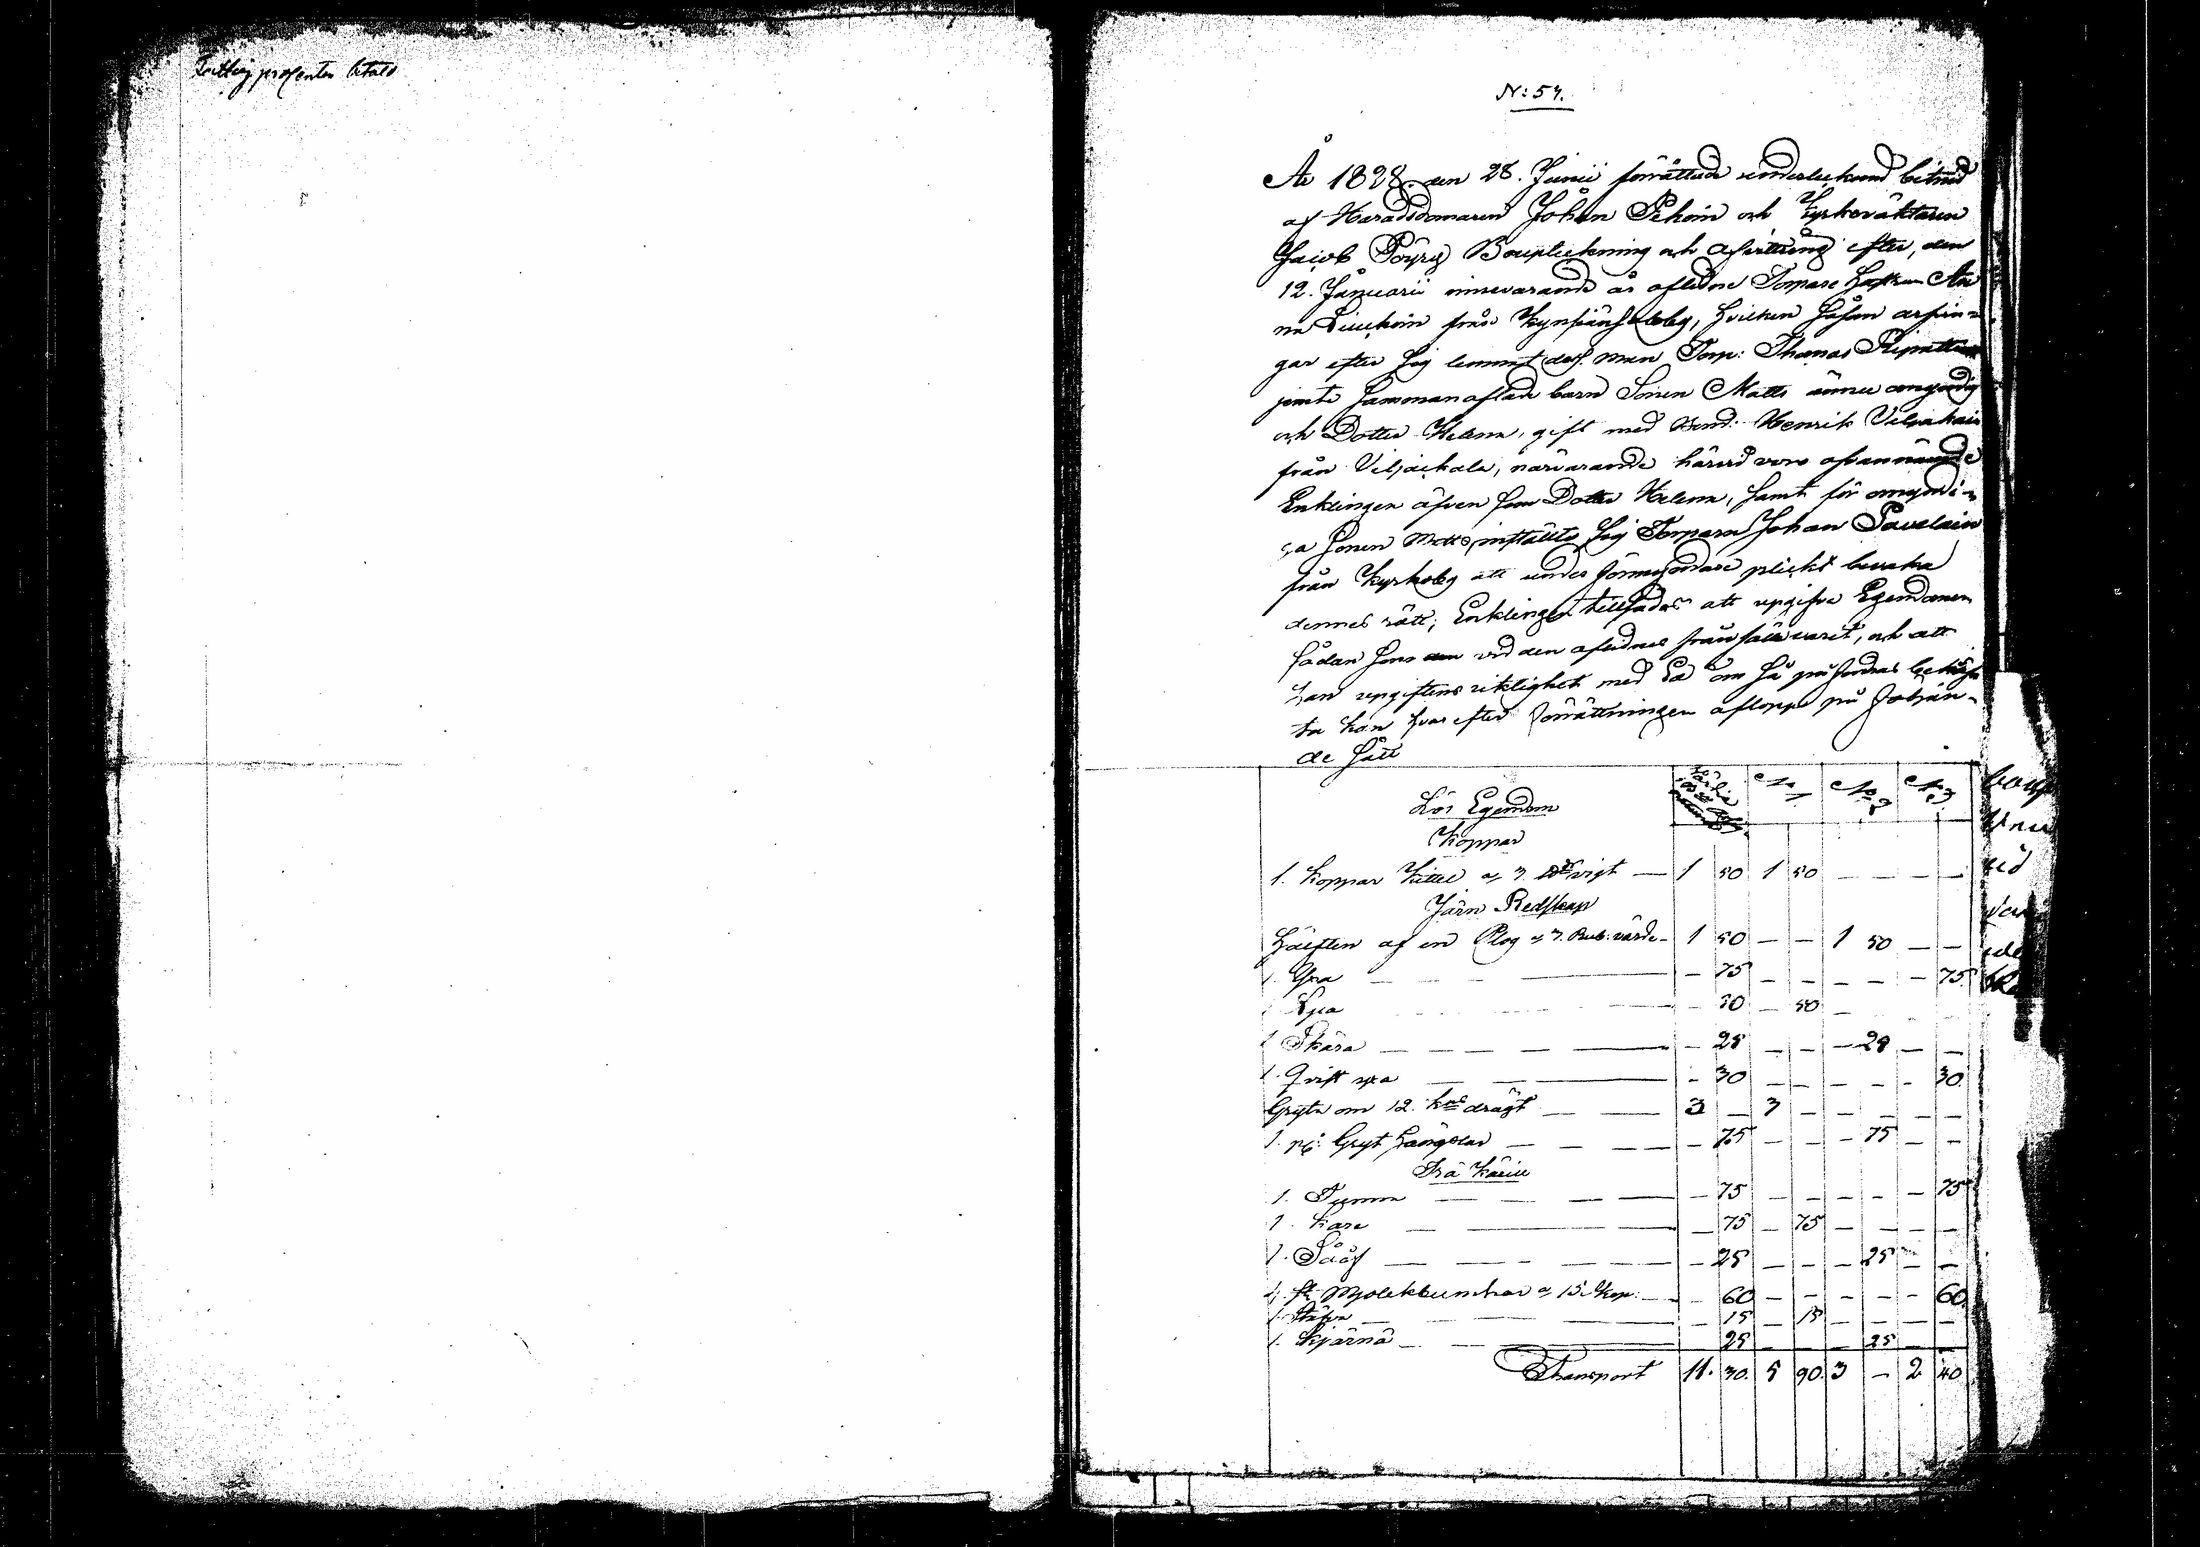 Fattig procenten betald
N: 54.
År 1828. den 28. Junii förrättade undertecknad biträd
af Häradsdomaren Johan Pekoin och Kyrkoväktaren
Jacob Pöyry Bouptekning och afvittring efter, den
12. Januarii innevarande år aflidne Torpare Hustrun An
na från hvilken såsom arfvin=
gar efter sig lemnat dess man Torp: Thomas
jemte sammanaflade barn Sonen Matts ännu omyndig
och Dotter Helena, gift med Bond: Henrik
från Viljackala, närvarande härvid voro ofvannämde
Enklingen äfven som Dotter Helena, samt för omyndi=
ga Sonen Matts instälte sig Torparn Johan Pavelain
från Kyrkoby att under förmyndare plickt bevaka
dennes rätt; Enklingen tillsades att upgifva Egendomen
sådan som den vid den aflidnes frånfälle varit, och att
han upgiftens riktighet med Ed om så påfordras bekräf
ta kan hvarefter förrättningen aflopp på följan=
de sätt
Lös Egendom No 1 No 2 No 3
Koppar
1. Koppar Kittel a 3. vigt — 1 50 1 50 — — — —
Järn Redskap
Hälften af en Plog a 3. Rub: värde — 1 50 — — 1 50 — —
1. Yxa — — 75 — — — — — 75
1 Lya — 50 — 50 —
1 Skära — — 25 — — — 25 — —
1. Qvist yxa — — 30 — — — — — 30
Gryta om 12. drägt — 3 — 3 — — — — —
1. pr: Gryt Hängslar — — 75 — — — 75 — —
Trä Käril
1. Tunna — — 75 — — — — — 75
1. Kara — — 75 — 75 — — — —
1. Såå — — 25 — — — 25 — —
4. st: Mjölckbunckar a 15 kop: — — 60 — — — — — 60
1 Stäfva — — 15 — 15 — — — —
1. Kjärnä — 25 — — — 25 — —
Transport 11. 30. 5 90. 3 — 2 40